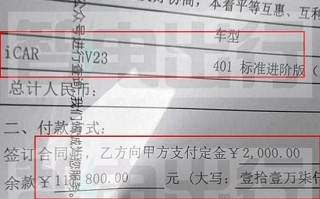 本着平等互惠、互利
车型
iCAR V23
401 标准进阶版
总计人民币：
二、付款方式：
签订合同后，乙方向甲方支付定金￥2,000.00
余款￥11 800.00 元（大写：壹拾壹万柒仟
众号进行查询，我们竭诚为您服务。